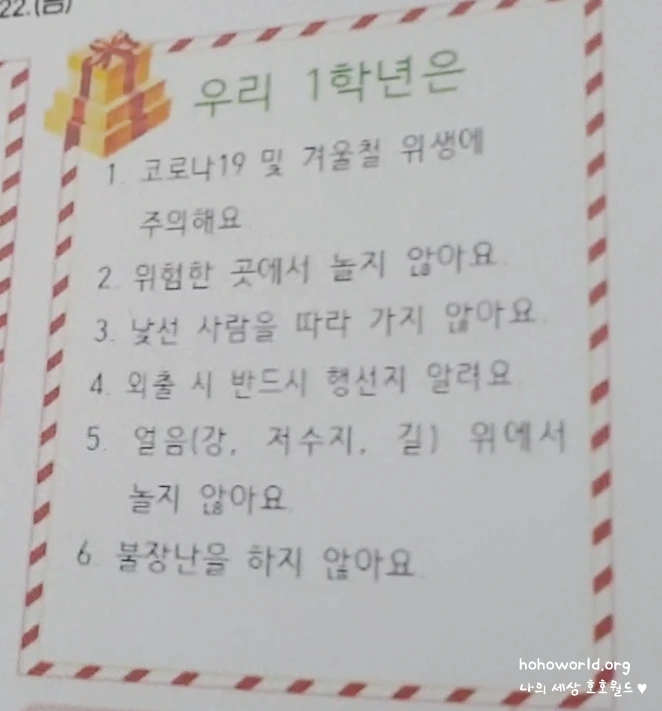 22.(금)
우리 1학년은
1. 코로나19 및 겨울철 위생에
주의해요
2. 위험한 곳에서 놀지 않아요.
3. 낯선 사람을 따라 가지 않아요.
4. 외출 시 반드시 행선지 알려요
5. 얼음(강, 저수지, 길) 위에서
놀지 않아요.
6. 불장난을 하지 않아요.
hohoworld.org
나의 세상 호호월드♥